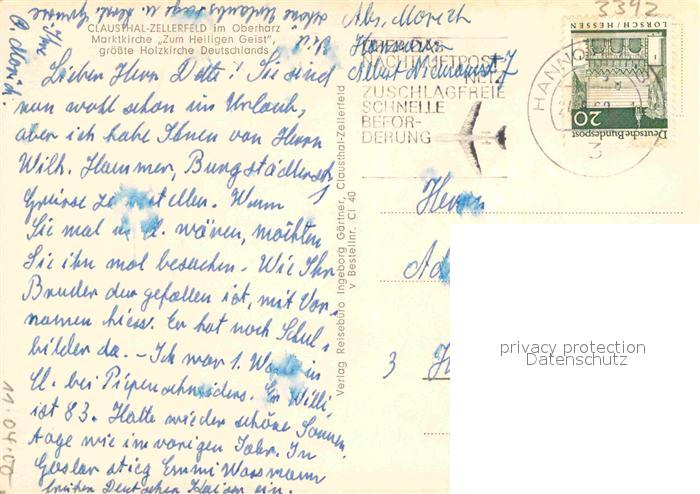 CLAUSTHAL-ZELLERFELD im Oberharz
Marktkirche „Zum Heiligen Geist",
größte Holzkirche Deutschlands
Lieber Herr ! Sie sind
nun wohl schon im Urlaub,
aber ich habe Ihnen von Herrn
Wilh. Hammer, Burgstädterstr.
Grüsse zu bestellen. Wenn
Sie mal in Cl. wären, möchten
Sie ihn mal besuchen. Wie Ihr
Bruder der gefallen ist, mit Vor-
namen hiess. Er hat noch Schul-
bilder da. - Ich war 1. Woche in
Cl. bei Piepenschneiders.
ist 83. Hatte wieder schöne Sonnen
tage wie im vorigen Jahr. In
Goslar stieg Emmi Wassmann
früher Deutschen Kaiser ein.
schöne Urlaubstage u. herzl. Grüsse
Ihre
Verlag Reisebüro Ingeborg Gärtner, Clausthal-Zellerfeld
v Bestellnr. Cl 40
Abs. Morich
Hannover
NACHTLUFTPOST
NETZ
ZUSCHLAGFREIE
SCHNELLE
BEFÖR-
DERUNG
HANNOVER
3
3392
LORSCH/HESSEN
20
Deutsche Bundespost
Herrn
3 H
11.04.00
privacy protection
Datenschutz